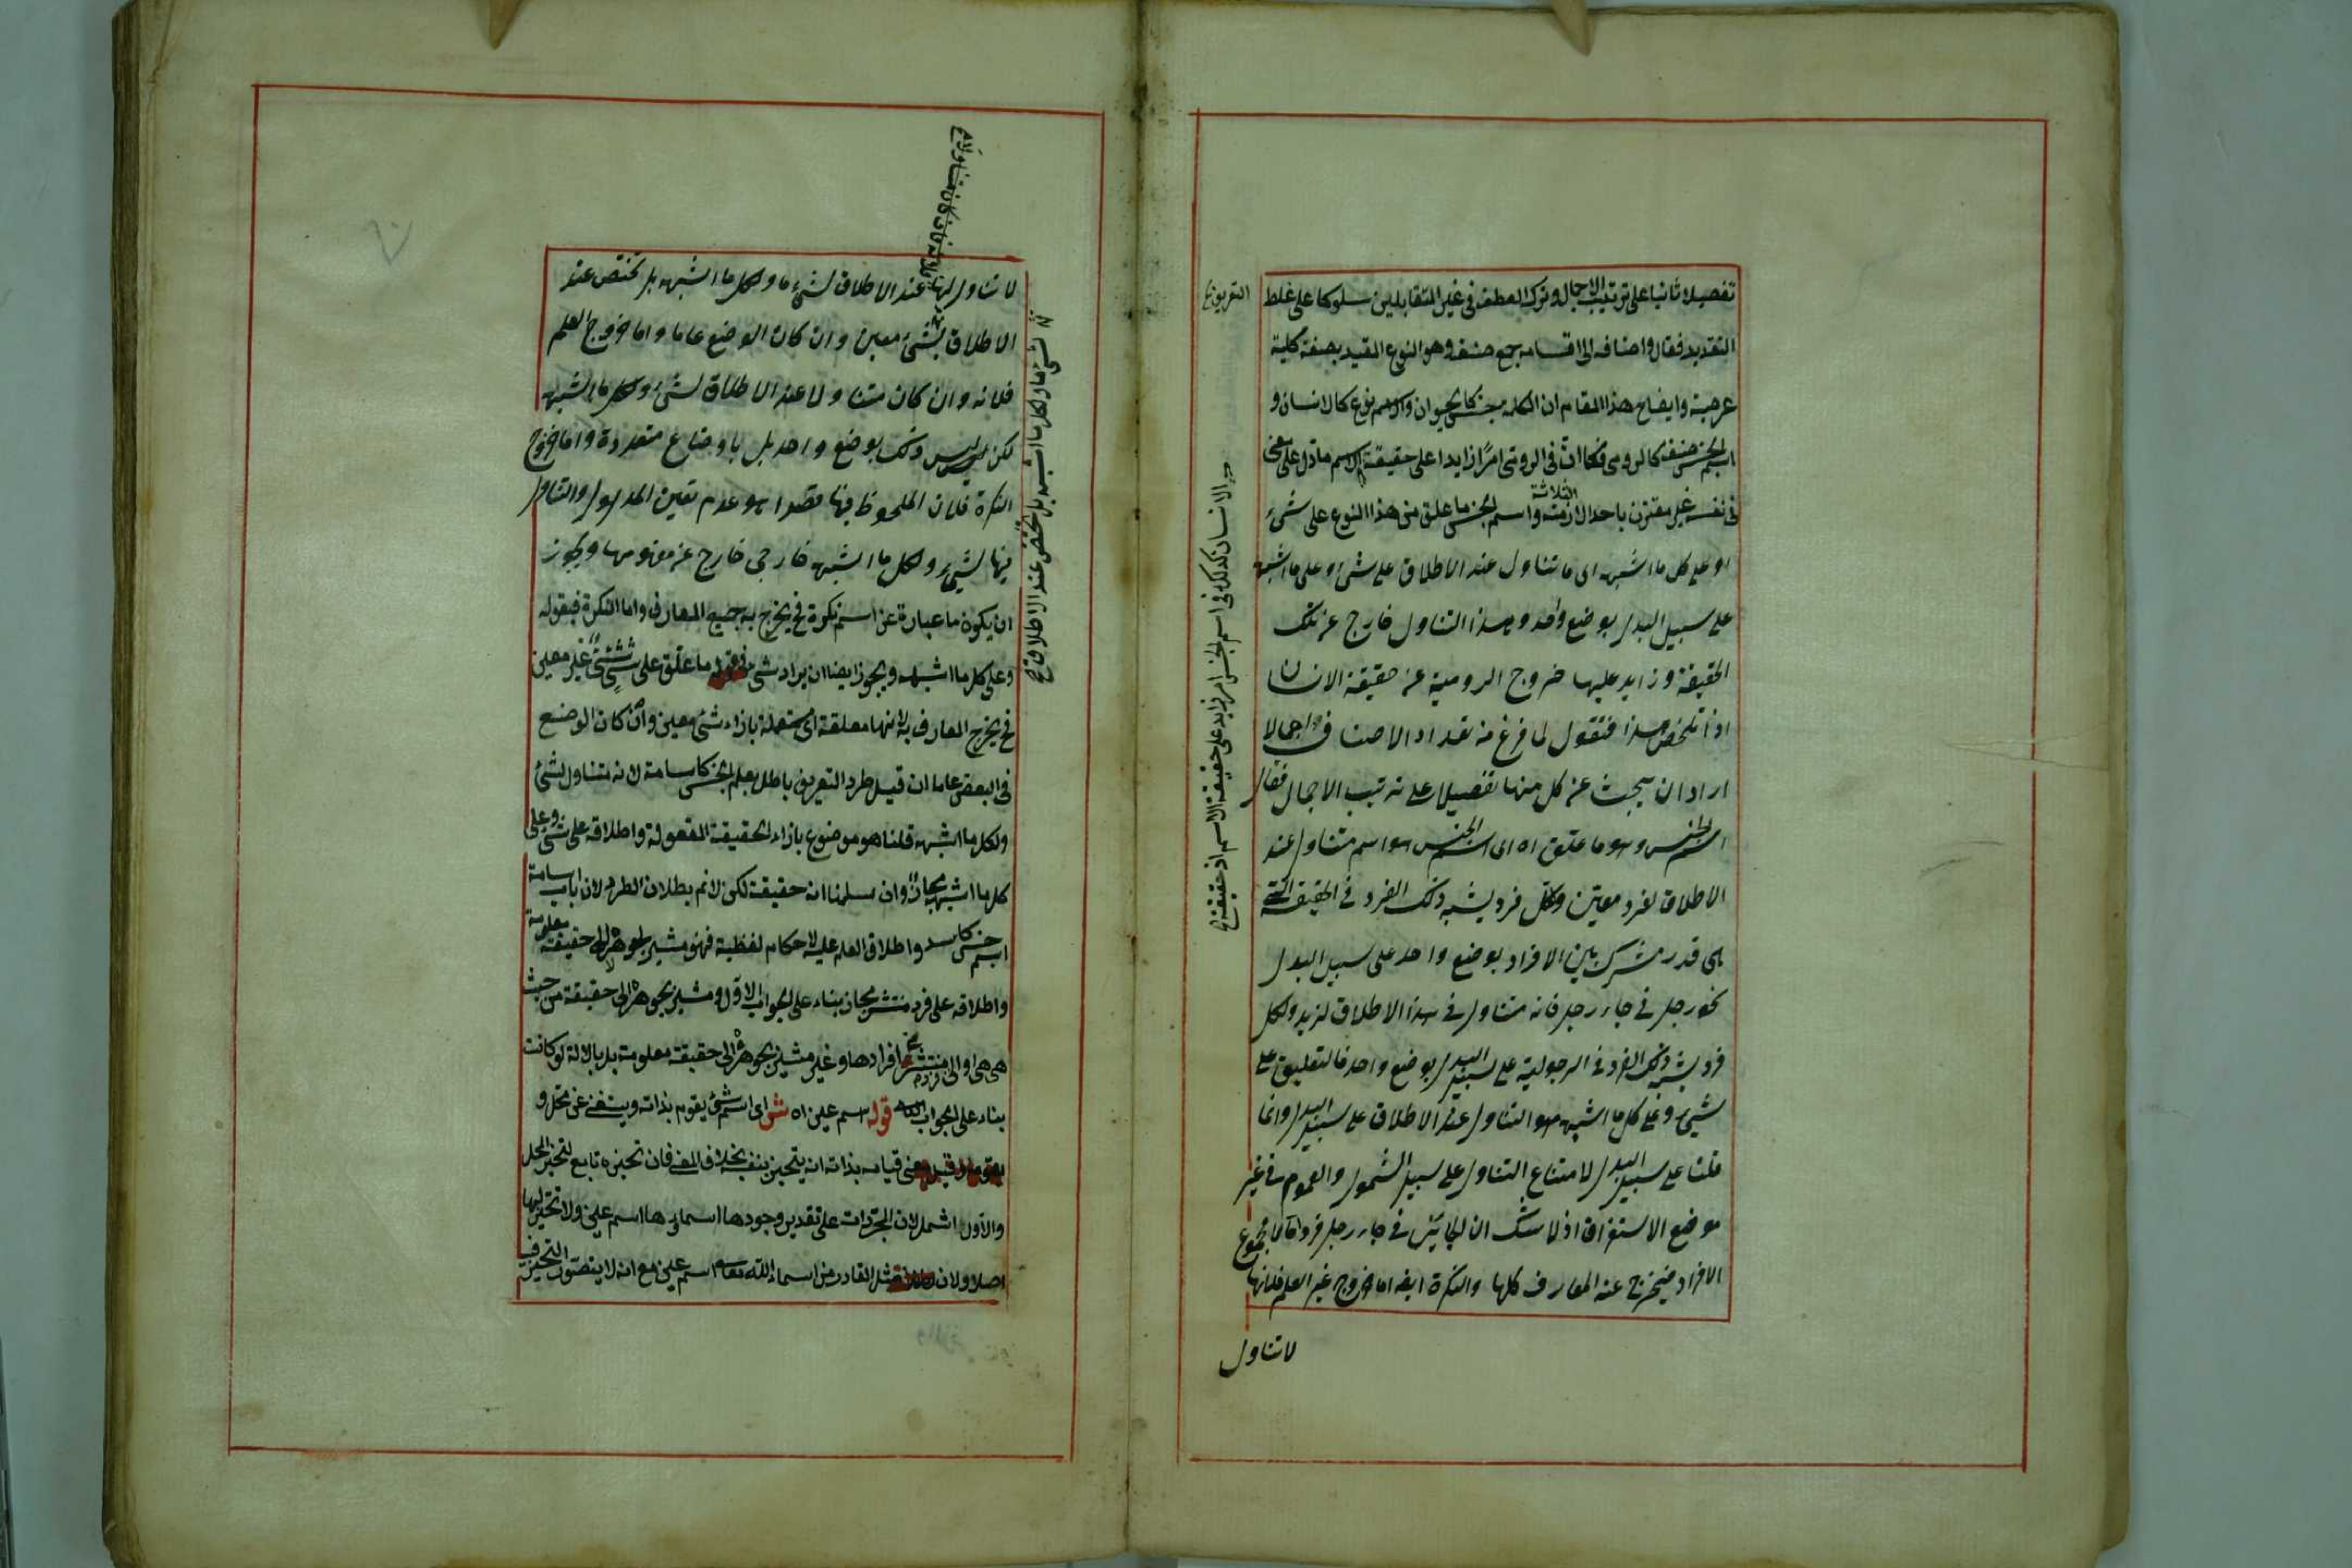 تفصيلا ثانيا على ترتيب الاجمال وترك العطف في غير المتقابلين سلوكا على غلط
التعريف
التقديد فقال واصنافه اى اقسامه جمع صنف وهو النوع المقيد بصفة كلية
عرضية وايضاح هذا المقام ان الكلمة جنس كالحيوان والاسم نوع كالانسان و
اسم الجنس صنف كالرومى فكما ان في الرومى امرا زايدا على حقيقة الاسم ما دل على معنى
في نفسه غير مقترن باحد الازمنة الثلاثة واسم الجنس ما علق من هذا النوع على شئ
او على كل ما اشبهه اى ما تناول عند الاطلاق على شئ وعلى ما اشبهه
على سبيل البدل بوضع واحد وهذا التناول خارج عن تلك
الحقيقة وزايد عليها خروج الرومية عن حقيقة الانسان
اذا تلخص هذا فنقول لما فرغ من تعداد الاصناف اجمالا
اراد ان يبحث عن كل منها تفصيلا على ترتيب الاجمال فقال
اسم الجنس وهو ما علق اه اى اسم الجنس هو اسم متناول عند
الاطلاق لفرد معين ولكل فرد يشبه ذلك الفرد في الحقيقة التى
هى قدر مشترك بين الافراد بوضع واحد على سبيل البدل
نحو رجل في جاء رجل فانه متناول في هذا الاطلاق لزيد ولكل
فرد يشبه ذلك الفرد في الرجولية على سبيل البدل بوضع واحد فالتعليق على
شئ وعلى كل ما اشبهه هو التناول عند الاطلاق على سبيل البدل وانما
قلنا على سبيل البدل لامتناع التناول على سبيل الشمول والعموم في غير
موضع الاستغراق اذ لا شك ان الجائى في جاء رجل فرد لا مجموع
الافراد فيخرج عنه المعارف كلها والنكرة ايضا اما خروج غير العلم فلانها
لا تناول
الانسان كذلك في اسم الجنس امر زايد على حقيقة الاسم اذ حقيقة
لا تناول لها عند الاطلاق لشئ ما ولكل ما اشبهه بل تختص عند
الاطلاق بشئ معين وان كان الوضع عاما واما خروج العلم
فلانه وان كان متناولا عند الاطلاق لشئ ولكل ما اشبهه
لكن ليس ذلك بوضع واحد بل باوضاع متعددة واما خروج
النكرة فلان الملحوظ فيها قصدا هو عدم تعين المدلول والتناول
فيها لشئ ولكل ما اشبهه خارجى خارج عن مفهومها ويجوز
ان يكون ما عبارة عن اسم نكرة فح يخرج به جميع المعارف واما النكرة فبقوله
وعلى كل ما اشبهه ويجوز ايضا ان يراد بشئ في قوله ما علق على شئ شئ غير معين
فح يخرج المعارف به لانها معلقة اى مستعملة بازاء شئ معين وان كان الوضع
في البعض عاما ان قيل طرد التعريف باطل بعلم الجنس كاسامة لانه متناول لشئ
ولكل ما اشبهه قلنا هو موضوع بازاء الحقيقة المعقولة واطلاقه على شئ وعلى
كل ما اشبهه مجاز وان سلمنا انه حقيقة لكن لا نم بطلان الطرد لان باب اسامة
اسم جنس كاسد واطلاق العلم عليه لاحكام لفظية فهو مشير بجوهره الى حقيقة معلومة
واطلاقه على فرد منتشر مجاز بناء على الجواب الاول ومشير بجوهره الى حقيقة من حيث
هى هى او الى فرد منتشر من افرادها وغير مشير بجوهره الى حقيقة معلومة بل بالالة لو كانت
بناء على الجواب قوله اسم عين اه ش اى اسم شئ يقوم بذاته ويستغنى عن محل و
وقيل معنى قيامه بذاته انه يتحيز بنفسه بخلاف المعنى فان تحيزه تابع لتحيز المحل
والاول اشمل لان المجردات على تقدير وجودها اسماؤها اسم عين ولا تحيز لها
اصلا ولان مثل القادر من اسماء الله تعالى اسم عين مع انه لا يتصور التحيز فيه
لشئ ما ولكل ما اشبهه بل تختص عند الاطلاق